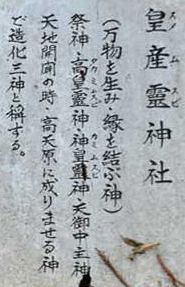 皇産霊神社
ミムスビ
(万物を生み・縁を結ぶ神)
祭神・高皇霊神・神皇霊神・天御中主神
タカミムスビ
カミムスビ
天地開闢の時・高天原に成りませる神
で造化三神と称する。